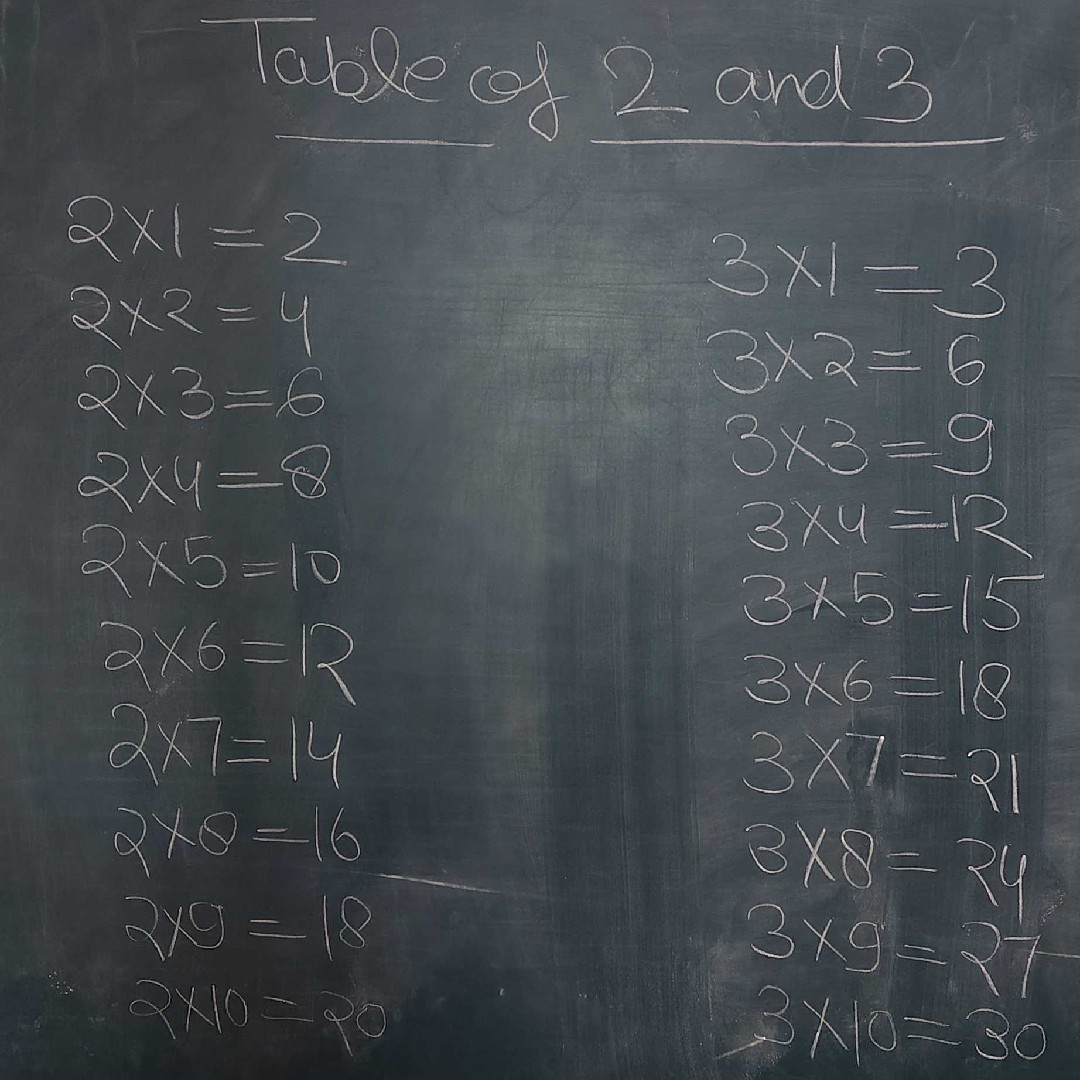 Table of 2 and 3
2×1=2
2×2=4
2×3=6
2×4=8
2×5=10
2×6=12
2×7=14
2×8=16
2×9=18
2×10=20
3×1=3
3×2=6
3×3=9
3×4=12
3×5=15
3×6=18
3×7=21
3×8=24
3×9=27
3×10=30